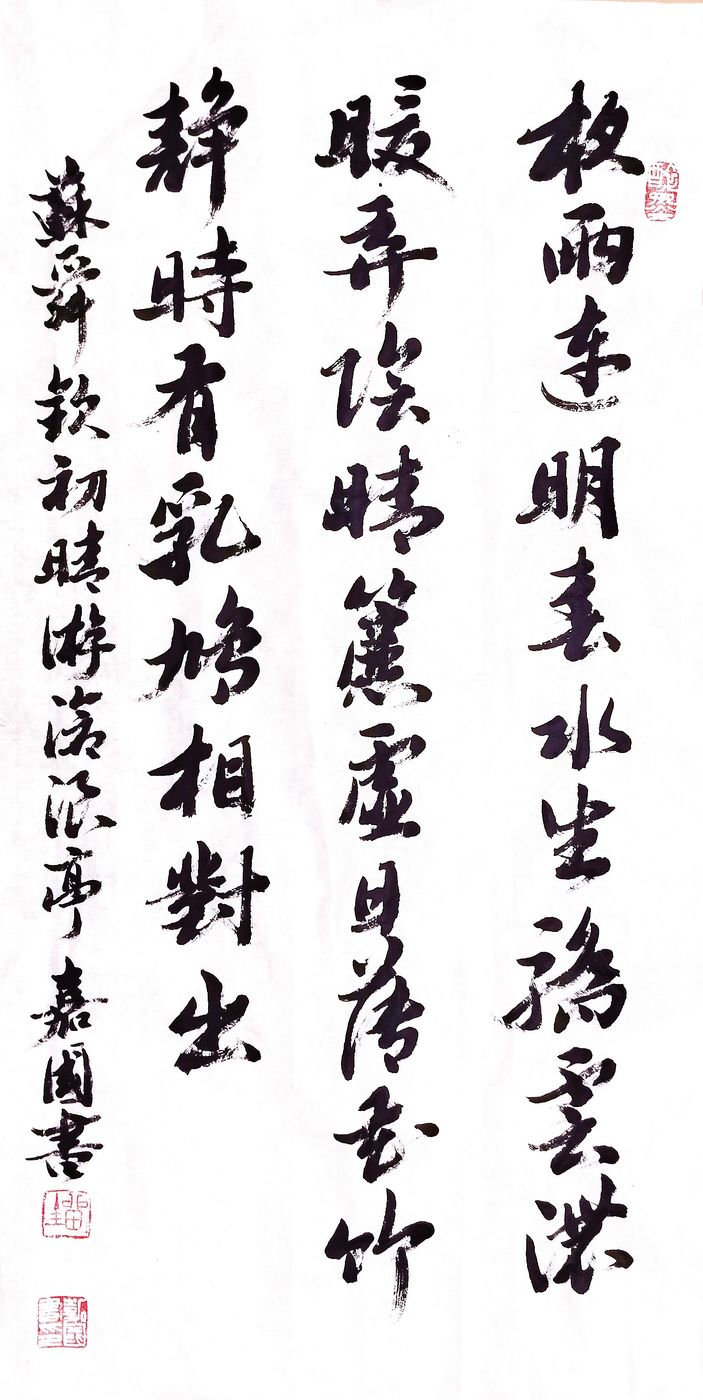 夜雨连明春水生嬌雲濃
暖弄陰晴簾虚日薄花竹
静時有乳鳩相對出
蘇舜欽初晴游滄浪亭 嘉國書